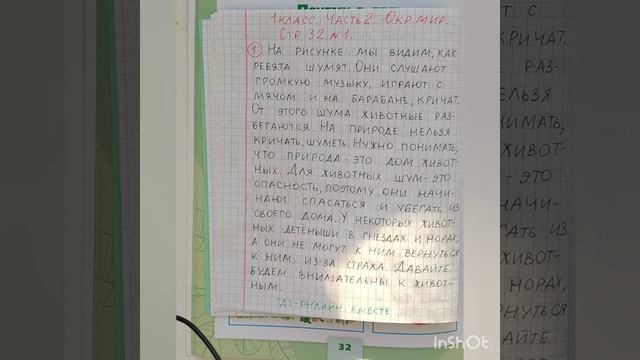 1 КЛАСС. ЧАСТЬ 2. ОКР. МИР.
СТР. 32 №1.
① НА РИСУНКЕ МЫ ВИДИМ, КАК
РЕБЯТА ШУМЯТ. ОНИ СЛУШАЮТ
ГРОМКУЮ МУЗЫКУ, ИГРАЮТ С
МЯЧОМ И НА БАРАБАНЕ, КРИЧАТ.
ОТ ЭТОГО ШУМА ЖИВОТНЫЕ РАЗ-
БЕГАЮТСЯ. НА ПРИРОДЕ НЕЛЬЗЯ
КРИЧАТЬ, ШУМЕТЬ. НУЖНО ПОНИМАТЬ,
ЧТО ПРИРОДА - ЭТО ДОМ ЖИВОТ-
НЫХ. ДЛЯ ЖИВОТНЫХ ШУМ - ЭТО
ОПАСНОСТЬ, ПОЭТОМУ ОНИ НАЧИ-
НАЮТ СПАСАТЬСЯ И УБЕГАТЬ ИЗ
СВОЕГО ДОМА. У НЕКОТОРЫХ ЖИВОТ-
НЫХ ДЕТЕНЫШИ В ГНЕЗДАХ И НОРАХ,
А ОНИ НЕ МОГУТ К НИМ ВЕРНУТЬСЯ
К НИМ ИЗ-ЗА СТРАХА. ДАВАЙТЕ
БУДЕМ ВНИМАТЕЛЬНЫ К ЖИВОТ-
НЫМ.
ДЗ-ОНЛАЙН ВМЕСТЕ
32
InShOt